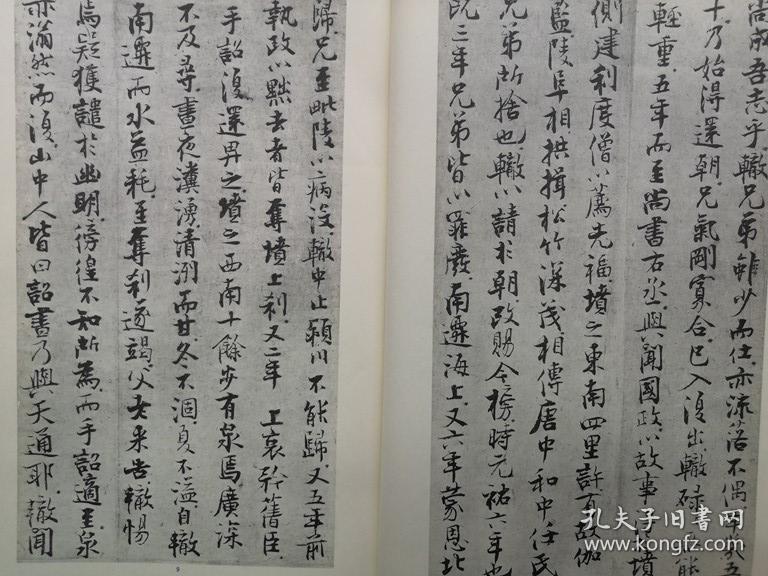 尚成吾志乎轍兄弟雖少而仕亦流落不偶
十乃始得還朝兄氣剛寡合已入復出轍碌
輕重五年而至尚書右丞與聞國政以故事
側建刹度僧以薦先福墳之東南四里許
藍陵阜相拱揖松竹深茂相傳唐中和中任氏
兄弟所捨也轍以請於朝改賜今榜時元祐六年也
既三年兄弟皆以罪廢南遷海上又六年蒙恩北
歸兄至毗陵以病没轍中止潁川不能歸又五年前
執政以黜去者皆奪墳上刹又二年 上哀矜舊臣
手詔復還畀之墳之西南十餘步有泉焉廣深
不及尋晝夜瀵湧清冽而甘冬不涸夏不溢自轍
南遷而水益耗至奪刹遂竭父老來告轍惕
焉疑獲譴於幽明徬徨不知所為而手詔適至泉
亦滃然而復山中人皆曰詔書乃與天通耶轍聞
9
孔夫子旧书网
www.kongfz.com